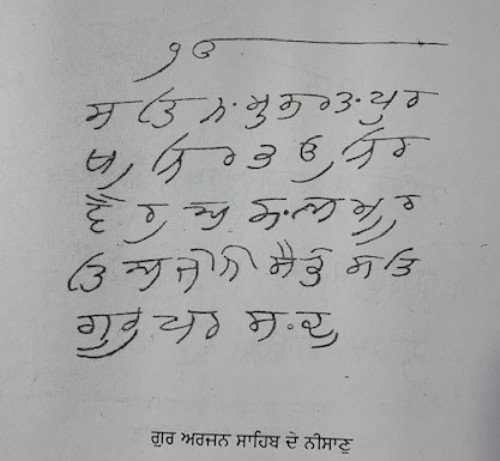 ੴ
ਸਤਿ ਨ.ਮੁ ਕਰਤ.ਪੁਰ
ਖੁ ਨਿਰਭਉ ਨਿਰ
ਵੈਰੁ ਅਕ.ਲ ਮੂਰ
ਤਿ ਅਜੋਨੀ ਸੈਭੰ ਸਤਿ
ਗੁਰੁ ਪਰਸ.ਦੁ
ਗੁਰ ਅਰਜਨ ਸਾਹਿਬ ਦੇ ਨੀਸਾਣੁ